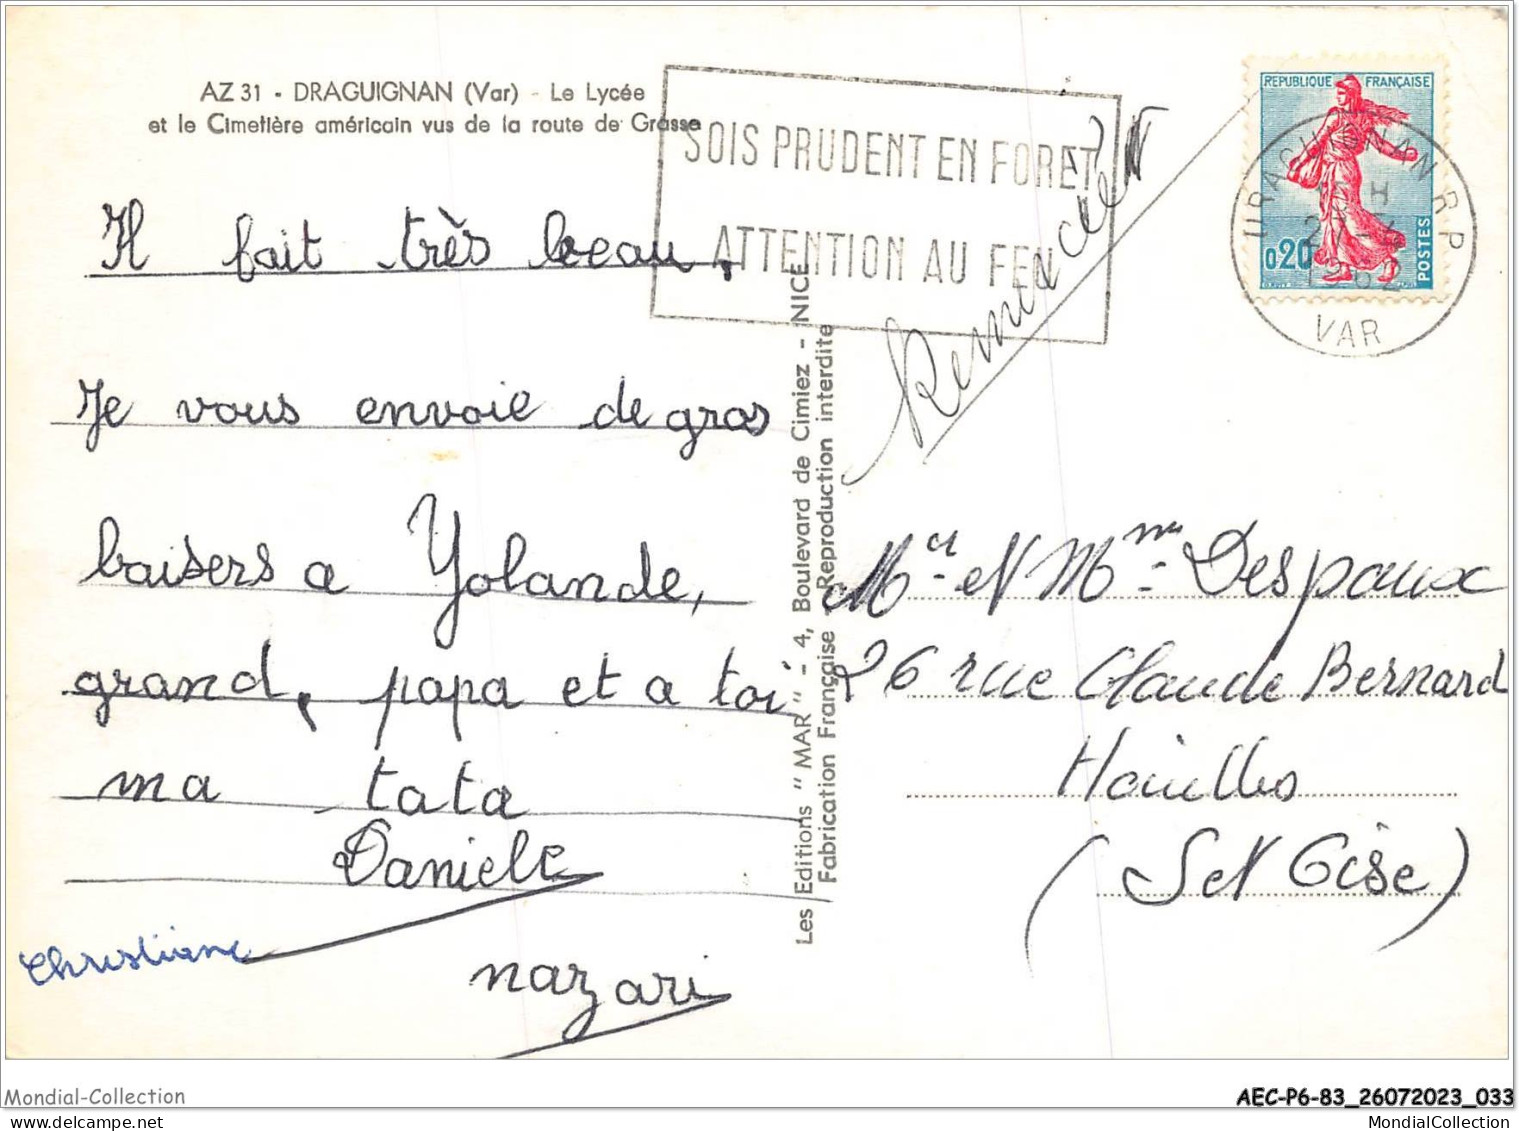 AZ 31 - DRAGUIGNAN (Var) - Le Lycée
et le Cimetière américain vus de la route de Grasse
SOIS PRUDENT EN FORET
ATTENTION AU FEU
REPUBLIQUE FRANÇAISE
0,20
POSTES
DRAGUIGNAN R.P.
27-4
1962
VAR
Il fait très beau.
Je vous envoie de gros
baisers a Yolande,
grand, papa et a toi
ma tata
Daniele
Christiane
nazari
Les Editions "MAR" - 4, Boulevard de Cimiez - NICE
Fabrication Française - Reproduction interdite
Mr et Mme Despaux
26 rue Claude Bernard
Houilles
(Set Oise)
Mondial-Collection
AEC-P6-83_26072023_033
MondialCollection